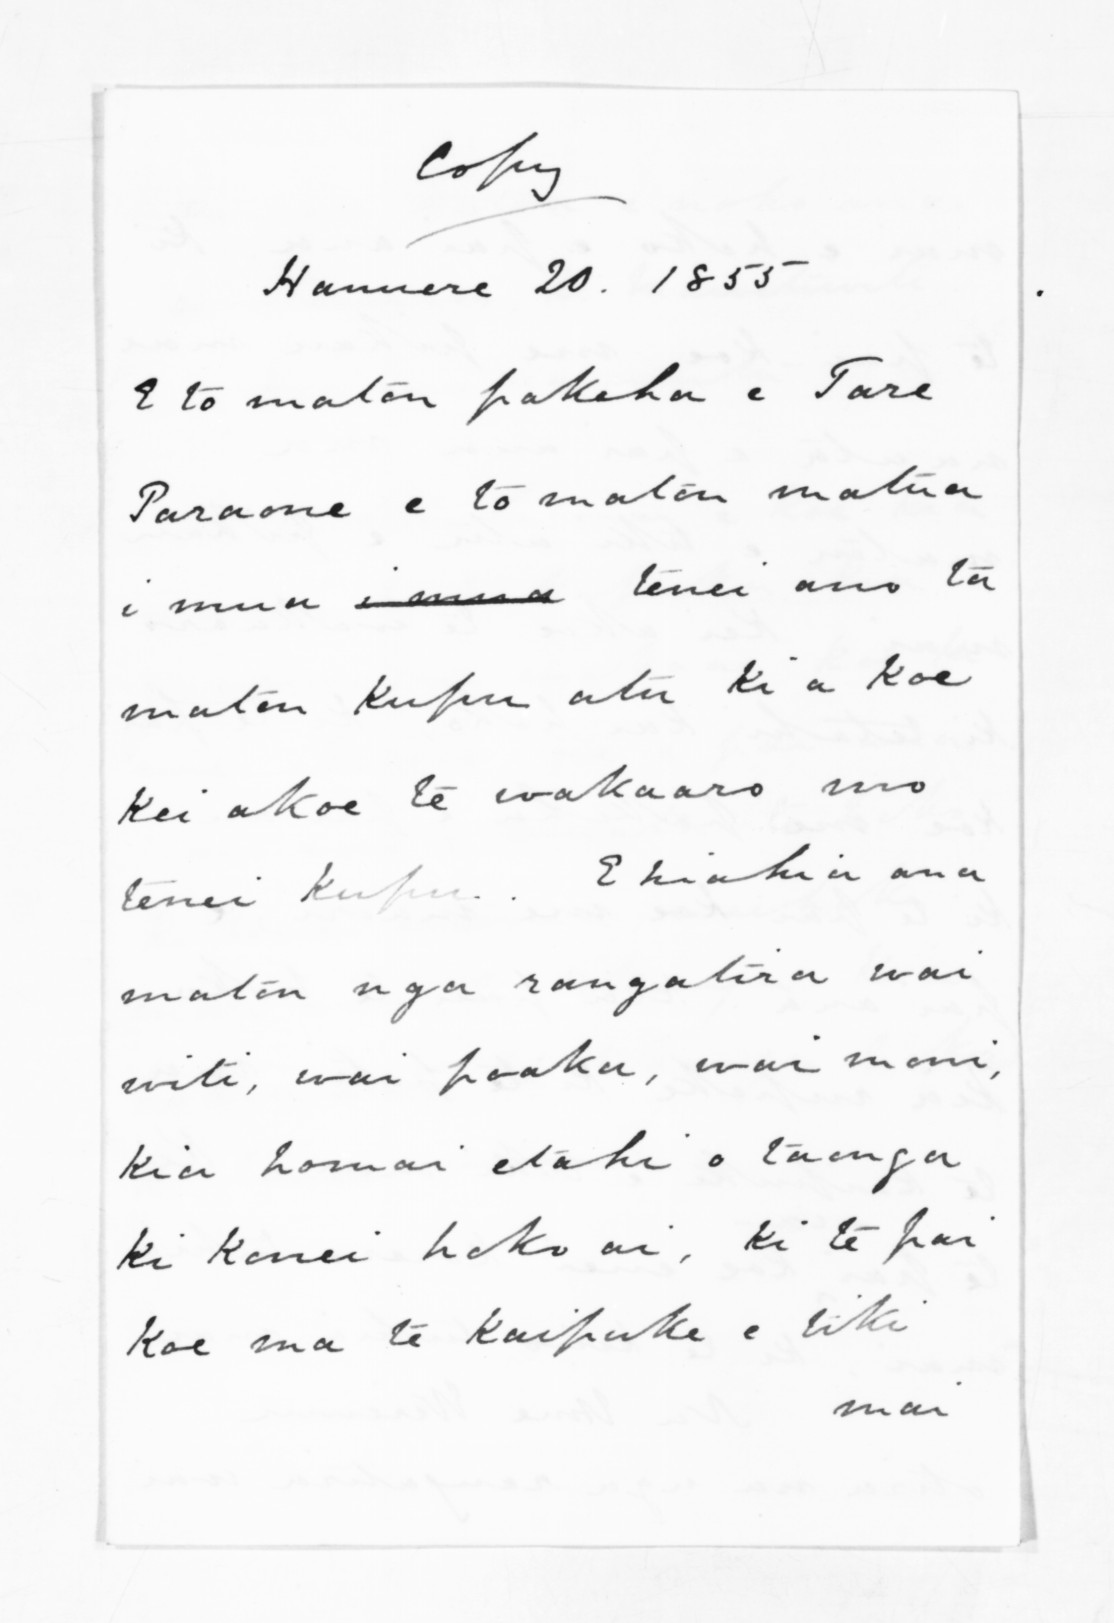 Copy
Hanuere 20. 1855
E to matou pakeha e Tare
Paraone e to matou matua
i mua i mua tenei ano ta
matou kupu atu ki a koe
Kei akoe te wakaaro mo
tenei kupu. E hiahia ana
matou nga rangatira wai
witi, wai poaka, wai moni,
kia homai etahi o taonga
ki konei hoko ai, ki te pai
koe ma te kaipuke e tiki
mai